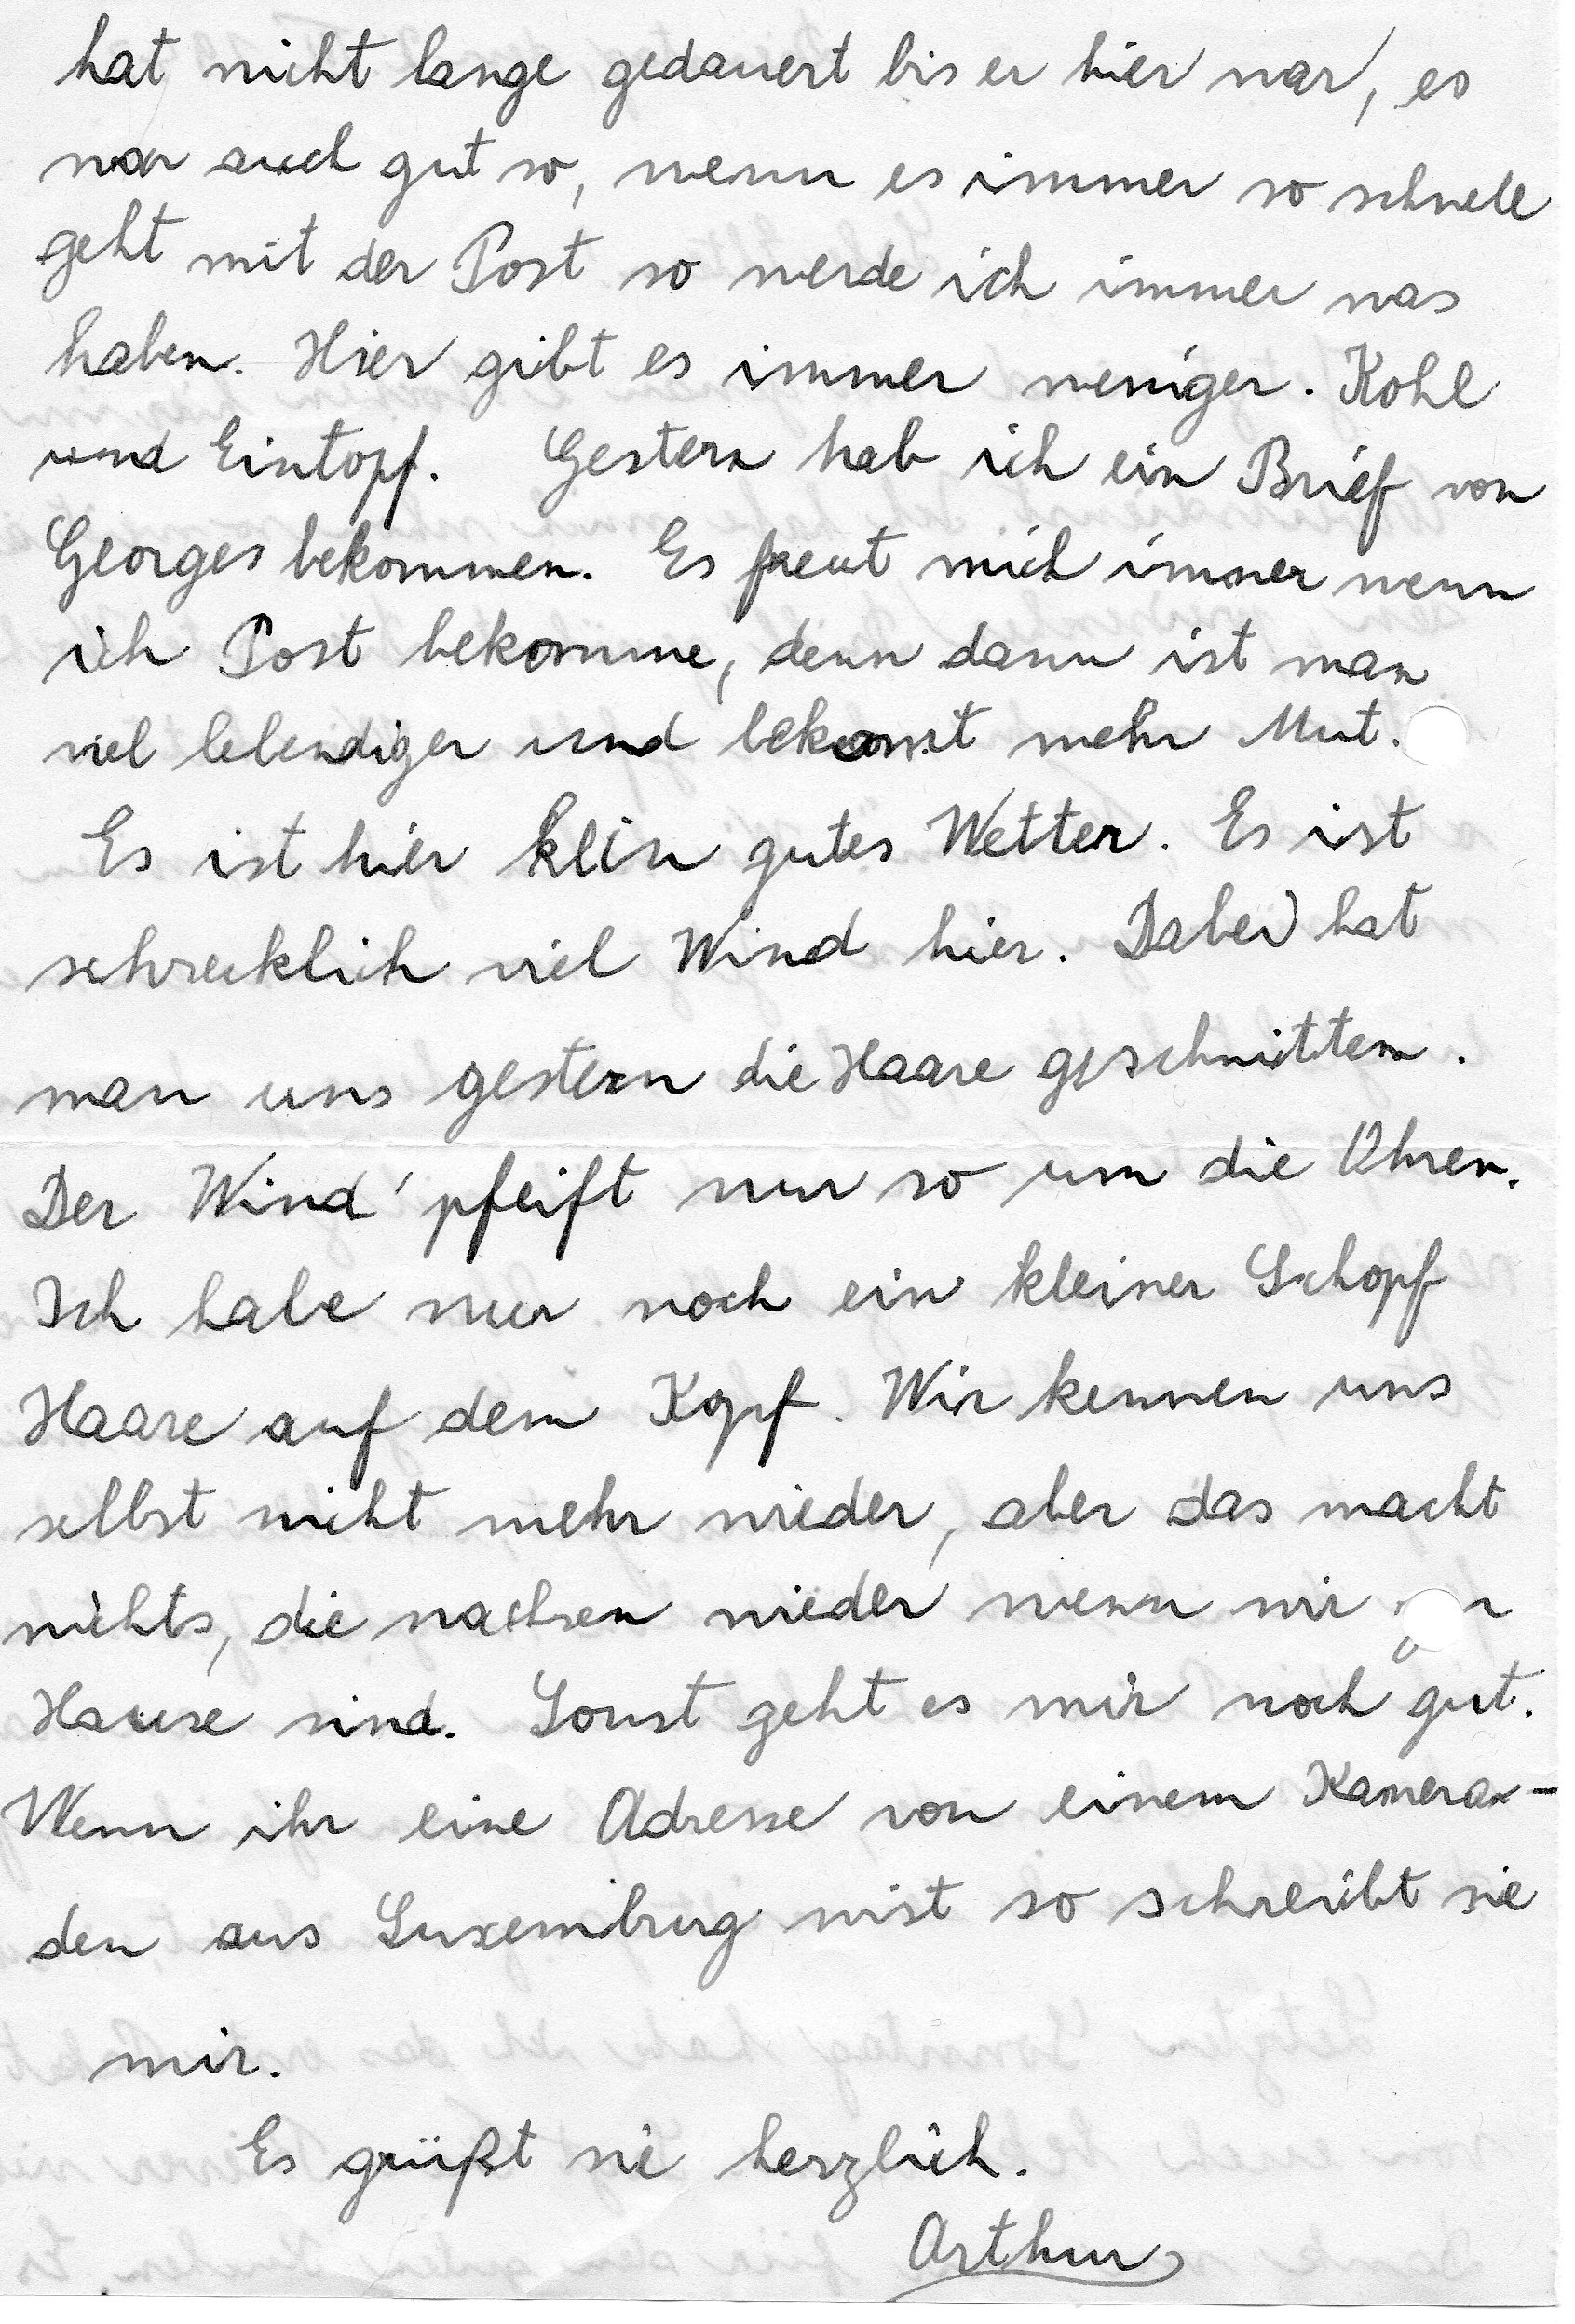 hat nicht lange gedauert bis er hier war, es
war auch gut so, wenn es immer so schnell
geht mit der Post so werde ich immer was
haben. Hier gibt es immer weniger. Kohl
und Eintopf. Gestern hab ich ein Brief von
Georges bekommen. Es freut mich immer wenn
ich Post bekomme, denn dann ist man
viel lebendiger und bekomst mehr Mut.
Es ist hier klein gutes Wetter. Es ist
schrecklich viel Wind hier. Dabei hat
man uns gestern die Haare geschnitten.
Der Wind pfeift nur so um die Ohren.
Ich habe nur noch ein kleiner Schopf
Haare auf dem Kopf. Wir kennen uns
selbst nicht mehr wieder, aber das macht
nichts, die wachsen wieder wenn wir
Hause sind. Sonst geht es mir noch gut.
Wenn ihr eine Adresse von einem Kamera-
den aus Luxemburg wist so schreibt sie
mir.
Es grüßt sie herzlich.
Arthur